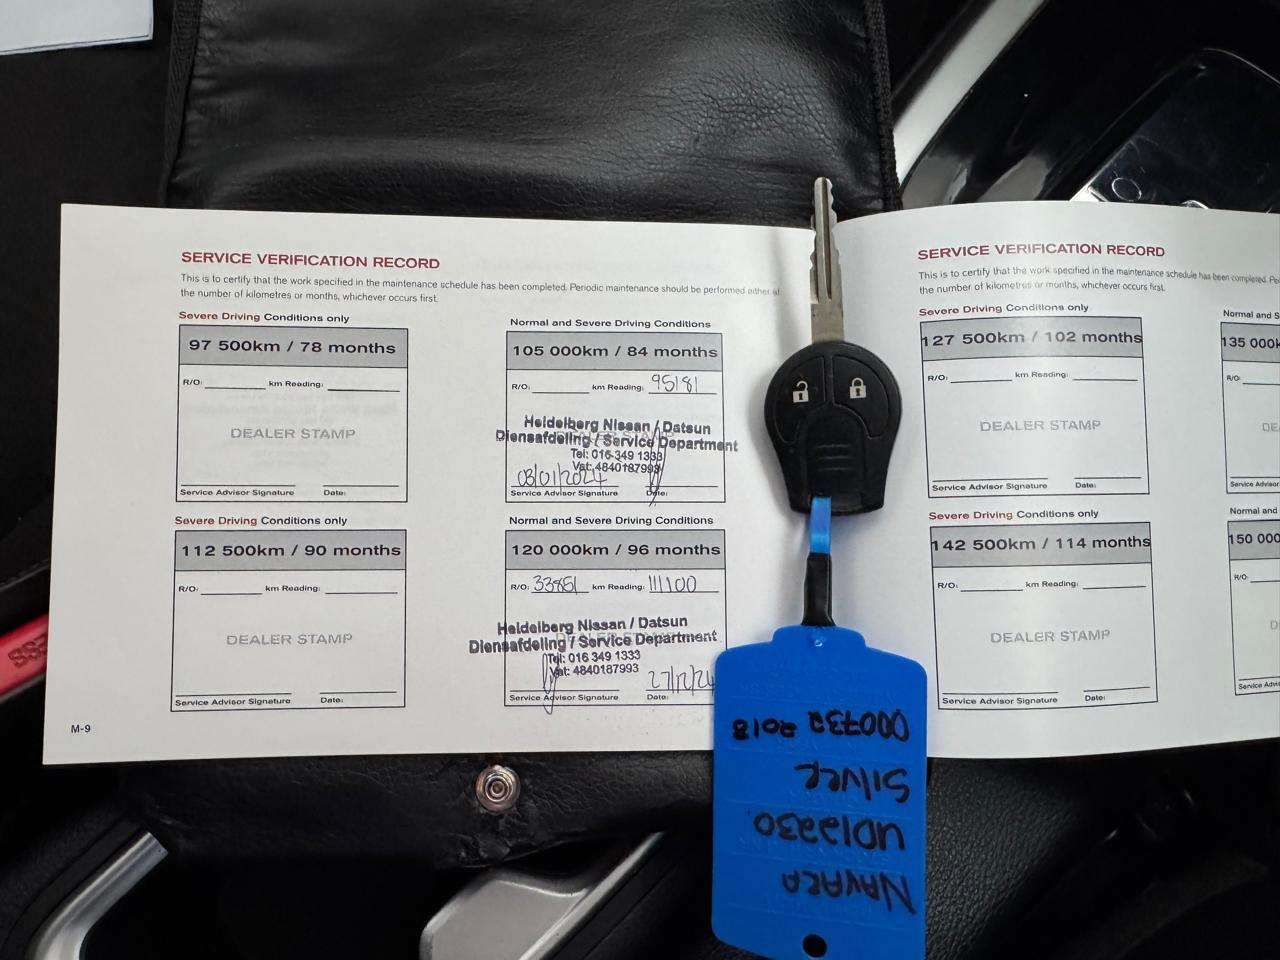 SERVICE VERIFICATION RECORD
This is to certify that the work specified in the maintenance schedule has been completed. Periodic maintenance should be performed either at
the number of kilometres or months, whichever occurs first.
Severe Driving Conditions only
97 500km / 78 months
R/O: km Reading:
DEALER STAMP
Service Advisor Signature Date:
Normal and Severe Driving Conditions
105 000km / 84 months
R/O: km Reading: 95181
Heidelberg Nissan / Datsun
Diensafdeling / Service Department
Tel: 016 349 1333
Vat: 4840187993
03/01/2024
Service Advisor Signature Date:
Severe Driving Conditions only
112 500km / 90 months
R/O: km Reading:
DEALER STAMP
Service Advisor Signature Date:
Normal and Severe Driving Conditions
120 000km / 96 months
R/O: 33851 km Reading: 111100
DEALER STAMP
Heidelberg Nissan / Datsun
Diensafdeling / Service Department
Tel: 016 349 1333
Vat: 4840187993
27/12/24
Service Advisor Signature Date:
M-9
SERVICE VERIFICATION RECORD
This is to certify that the work specified in the maintenance schedule has been completed.
the number of kilometres or months, whichever occurs first.
Severe Driving Conditions only
127 500km / 102 months
R/O: km Reading:
DEALER STAMP
Service Advisor Signature Date:
Normal and S
135 000k
R/O:
DE
Service Advisor
Severe Driving Conditions only
142 500km / 114 months
R/O: km Reading:
DEALER STAMP
Service Advisor Signature Date:
Normal and
150 000
R/O:
Service Advis
NAVARA
UD12230
SILVER
000732 2018